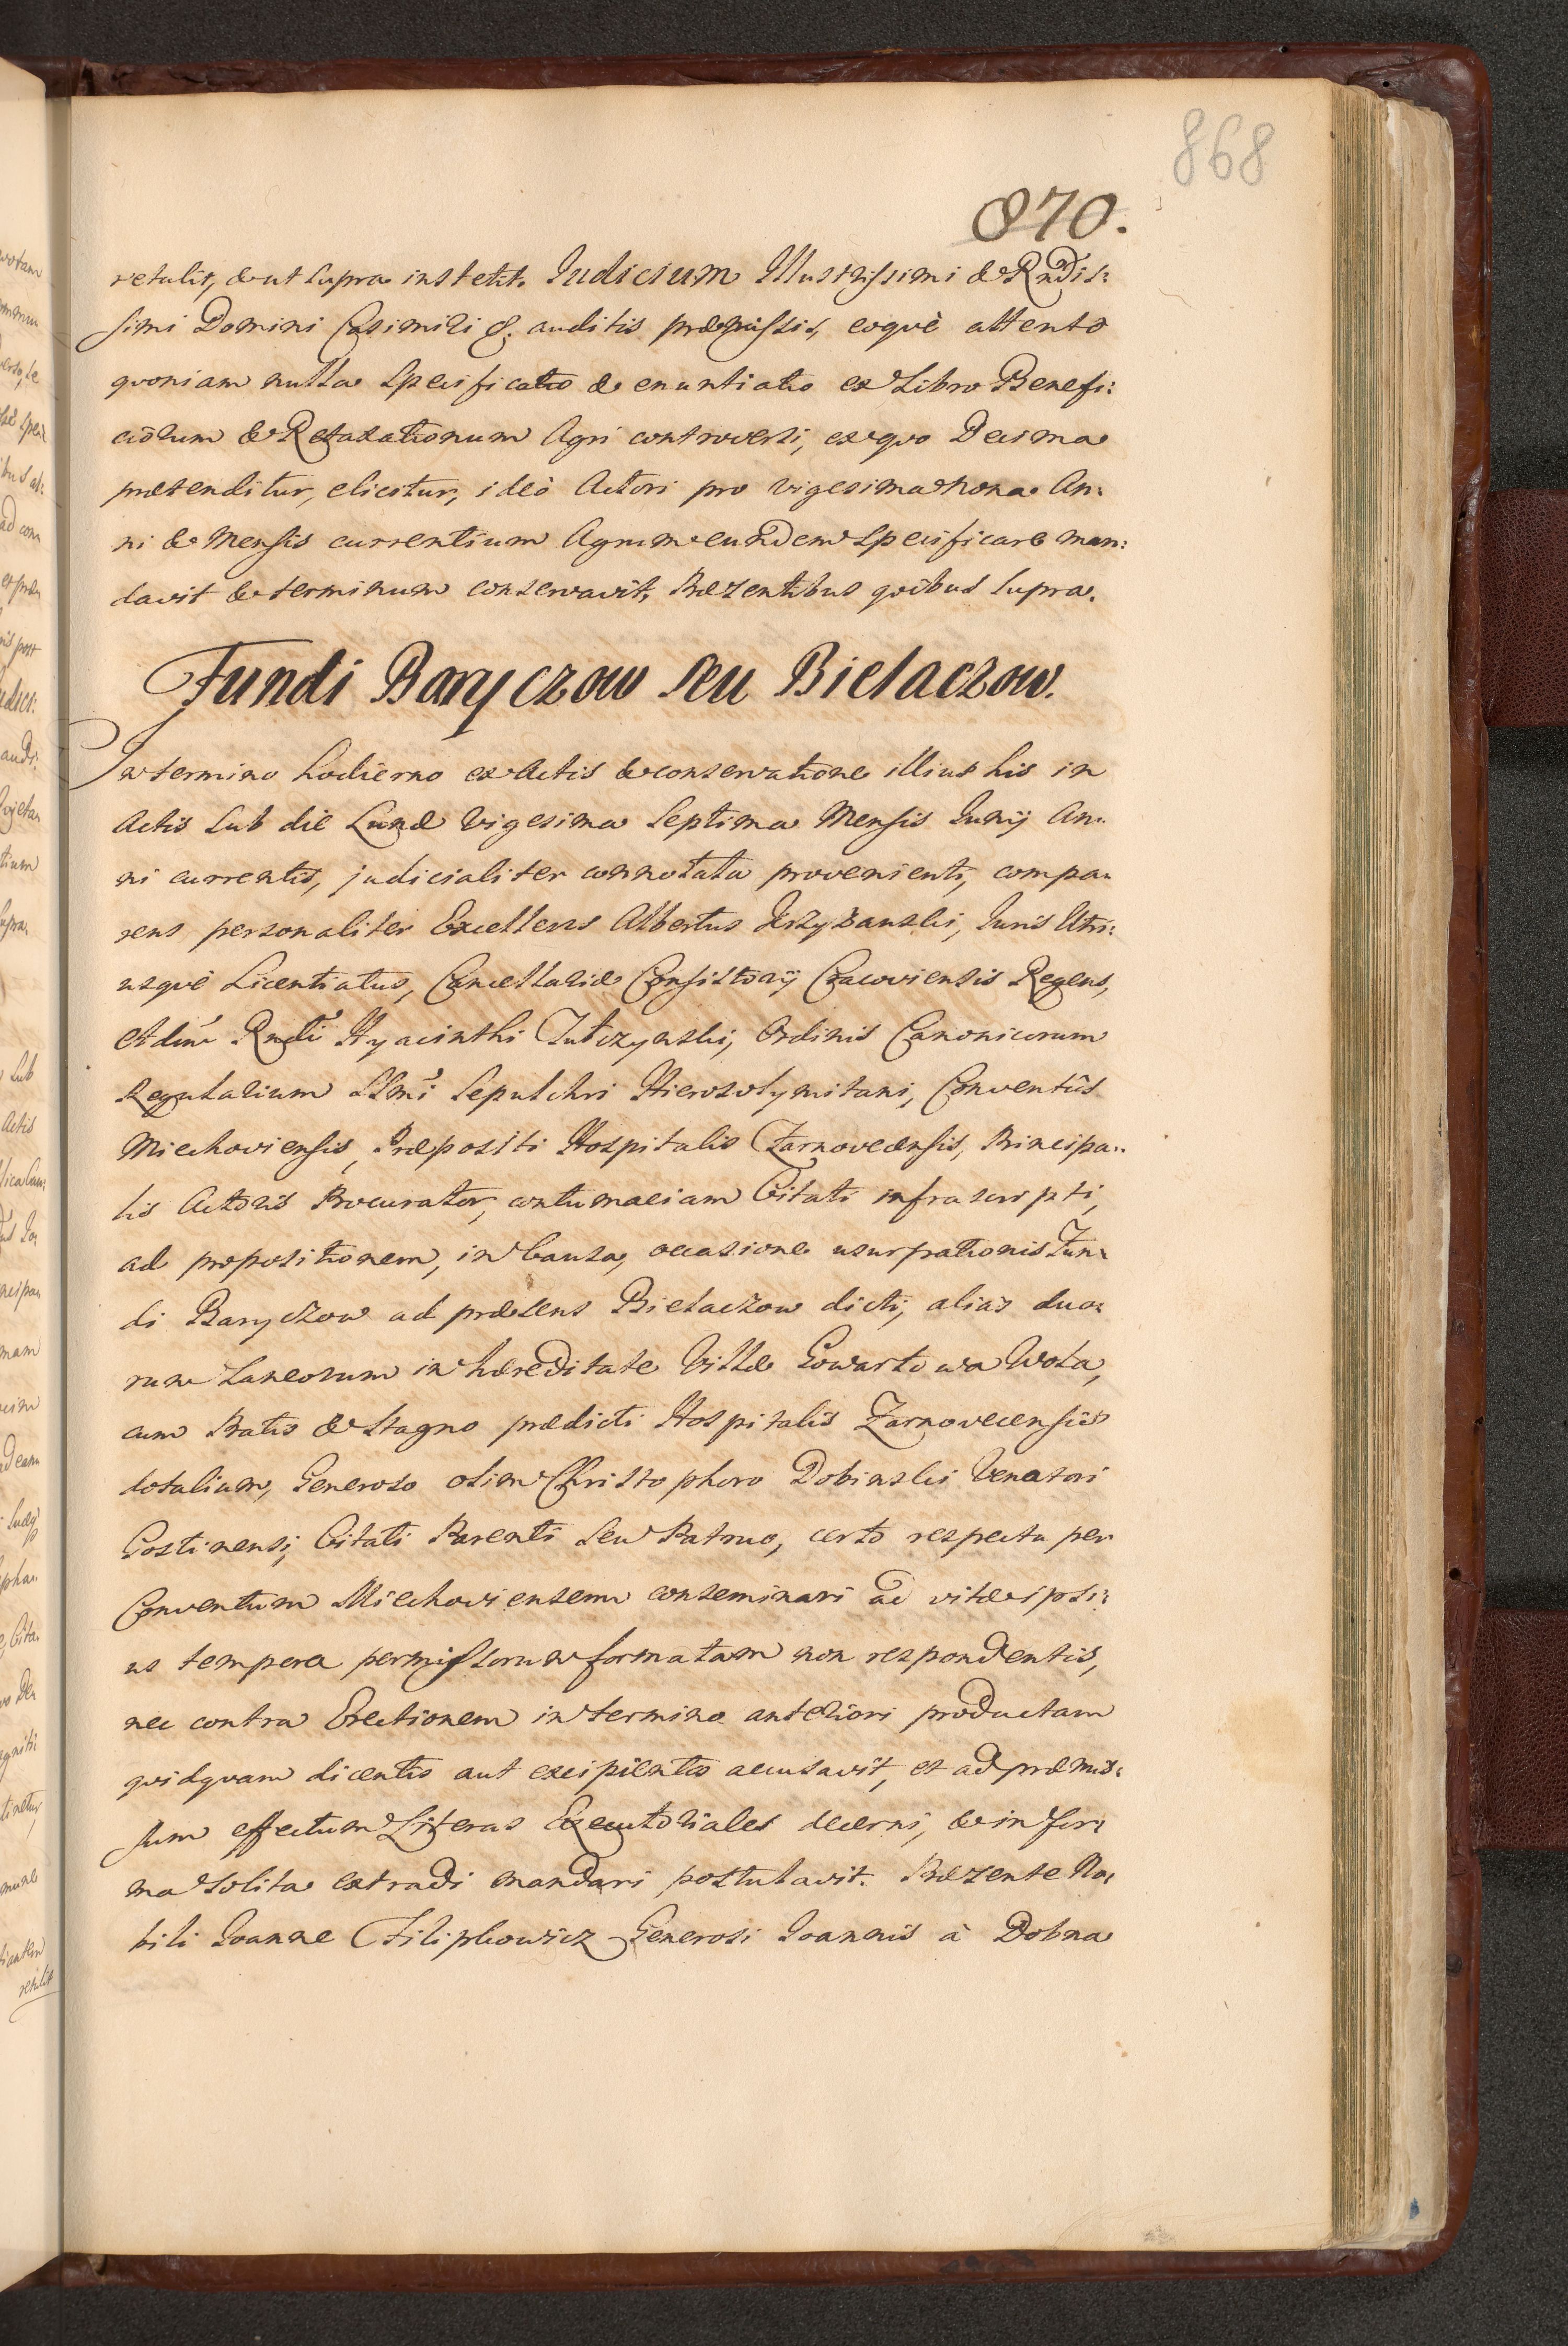 868
870.
retulit, & ut supra institit. Judicium Illustrissimi & Rndis:
simi Domini Casimiri &. auditis præmissis, eoquè attento
quoniam nulla specificatio & enuntiatio ex Libro Benefi:
ciorum & Retaxationum Agri controversi, ex quo Decima
prætenditur, elicitur, ideò Actori pro vigesima nona An:
ni & Mensis currentium Agrum eundem specificare man:
davit & terminum conservavit, Præzentibus quibus supra.
Fundi Baryczow seu Bielaczow.
In termino hodierno ex Actis & conservatione illius his in
Actis sub die Lunæ vigesima septima Mensis Junij An:
ni currentis, judicialiter connotata provenienti, compa:
rens personaliter Excellens Albertus Jrzyzanski, Juris Utri:
usquè Licentiatus, Cancellariæ Consistorij Cracoviensis Regens,
et dni Rndi Hyacinthi Jutczynski, Ordinis Canonicorum
Regularium SSmi Sepulchri Hierosolymitani, Conventûs
Miechoviensis, Præpositi Hospitalis Zarnovecensis, Principa:
lis Actoris Procurator, contumaciam Citati infrascripti,
ad propositionem, in Causa, occasione usurpationis Fun:
di Baryczow ad præsens Bielaczow dicti, alias duo:
rum Laneorum in hæreditate Villæ Gowartowa Wola,
cum Pratis & Stagno prædicti Hospitalis Zarnovecensis
dotalium, Generoso olim Christophoro Dobinski Venatori
Gostinensi, Citati Parenti seu Patruo, certo respectu per
Conventum Miechoviensem conseminari ad vitæ ipsi:
us tempora permissorum formatam non respondentis,
nec contra Erectionem in termino anteriori productam
quidquam dicentis aut excipientis accusavit, et ad præmis:
sum effectum Literas Executoriales decerni, & in for:
ma solita extradi mandari postulavit. Præzente No:
bili Joanne Filipkowicz Generosi Joannis à Dobna